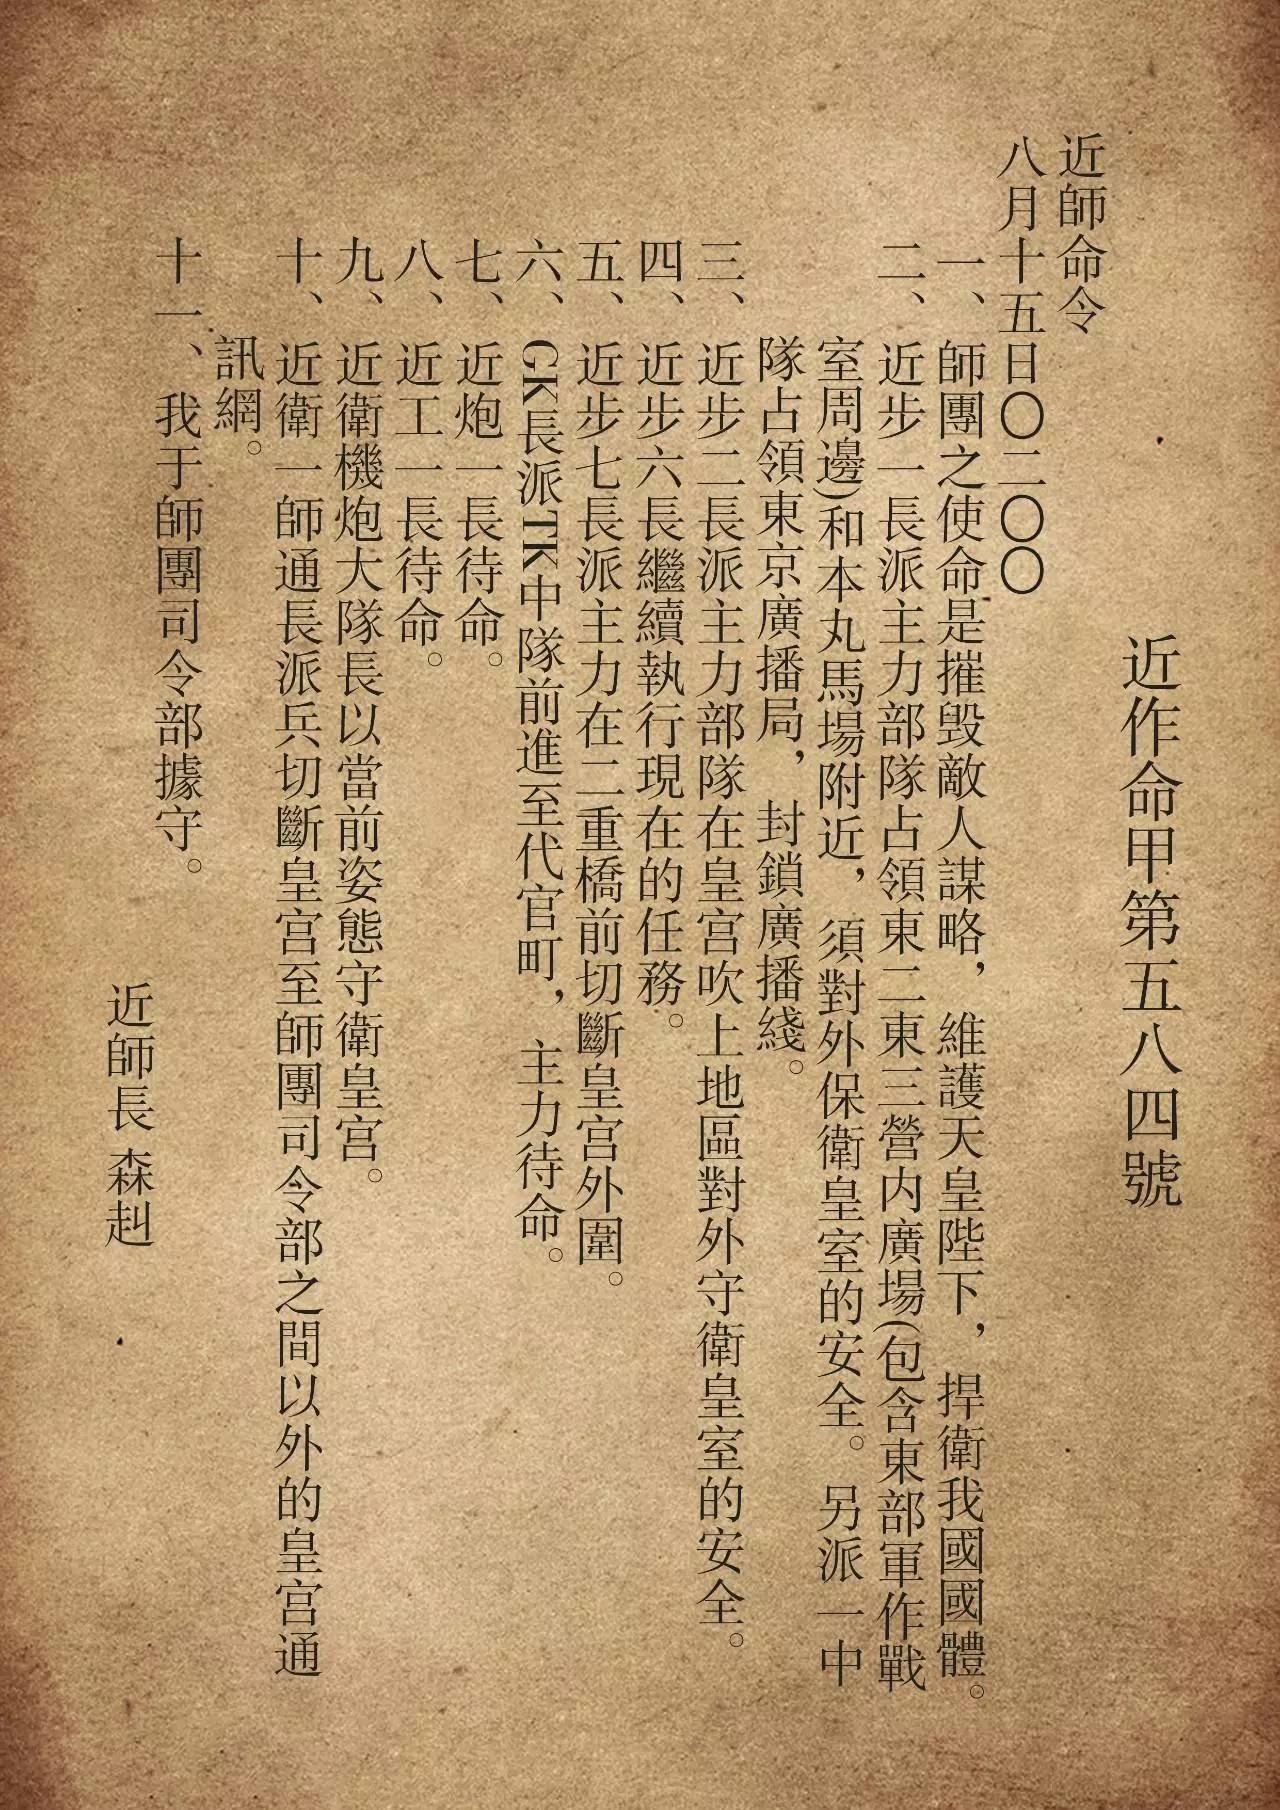 近作命甲第五八四號
近師命令
八月十五日〇二〇〇
一、師團之使命是摧毀敵人謀略，維護天皇陛下，捍衛我國國體。
二、近步一長派主力部隊占領東二東三營内廣場(包含東部軍作戰
室周邊)和本丸馬場附近，須對外保衛皇室的安全。另派一中
隊占領東京廣播局，封鎖廣播綫。
三、近步二長派主力部隊在皇宫吹上地區對外守衛皇室的安全。
四、近步六長繼續執行現在的任務。
五、近步七長派主力在二重橋前切斷皇宫外圍。
六、GK長派TK中隊前進至代官町，主力待命。
七、近炮一長待命。
八、近工一長待命。
九、近衛機炮大隊長以當前姿態守衛皇宫。
十、近衛一師通長派兵切斷皇宫至師團司令部之間以外的皇宫通
訊網。
十一、我于師團司令部據守。
近師長 森赳